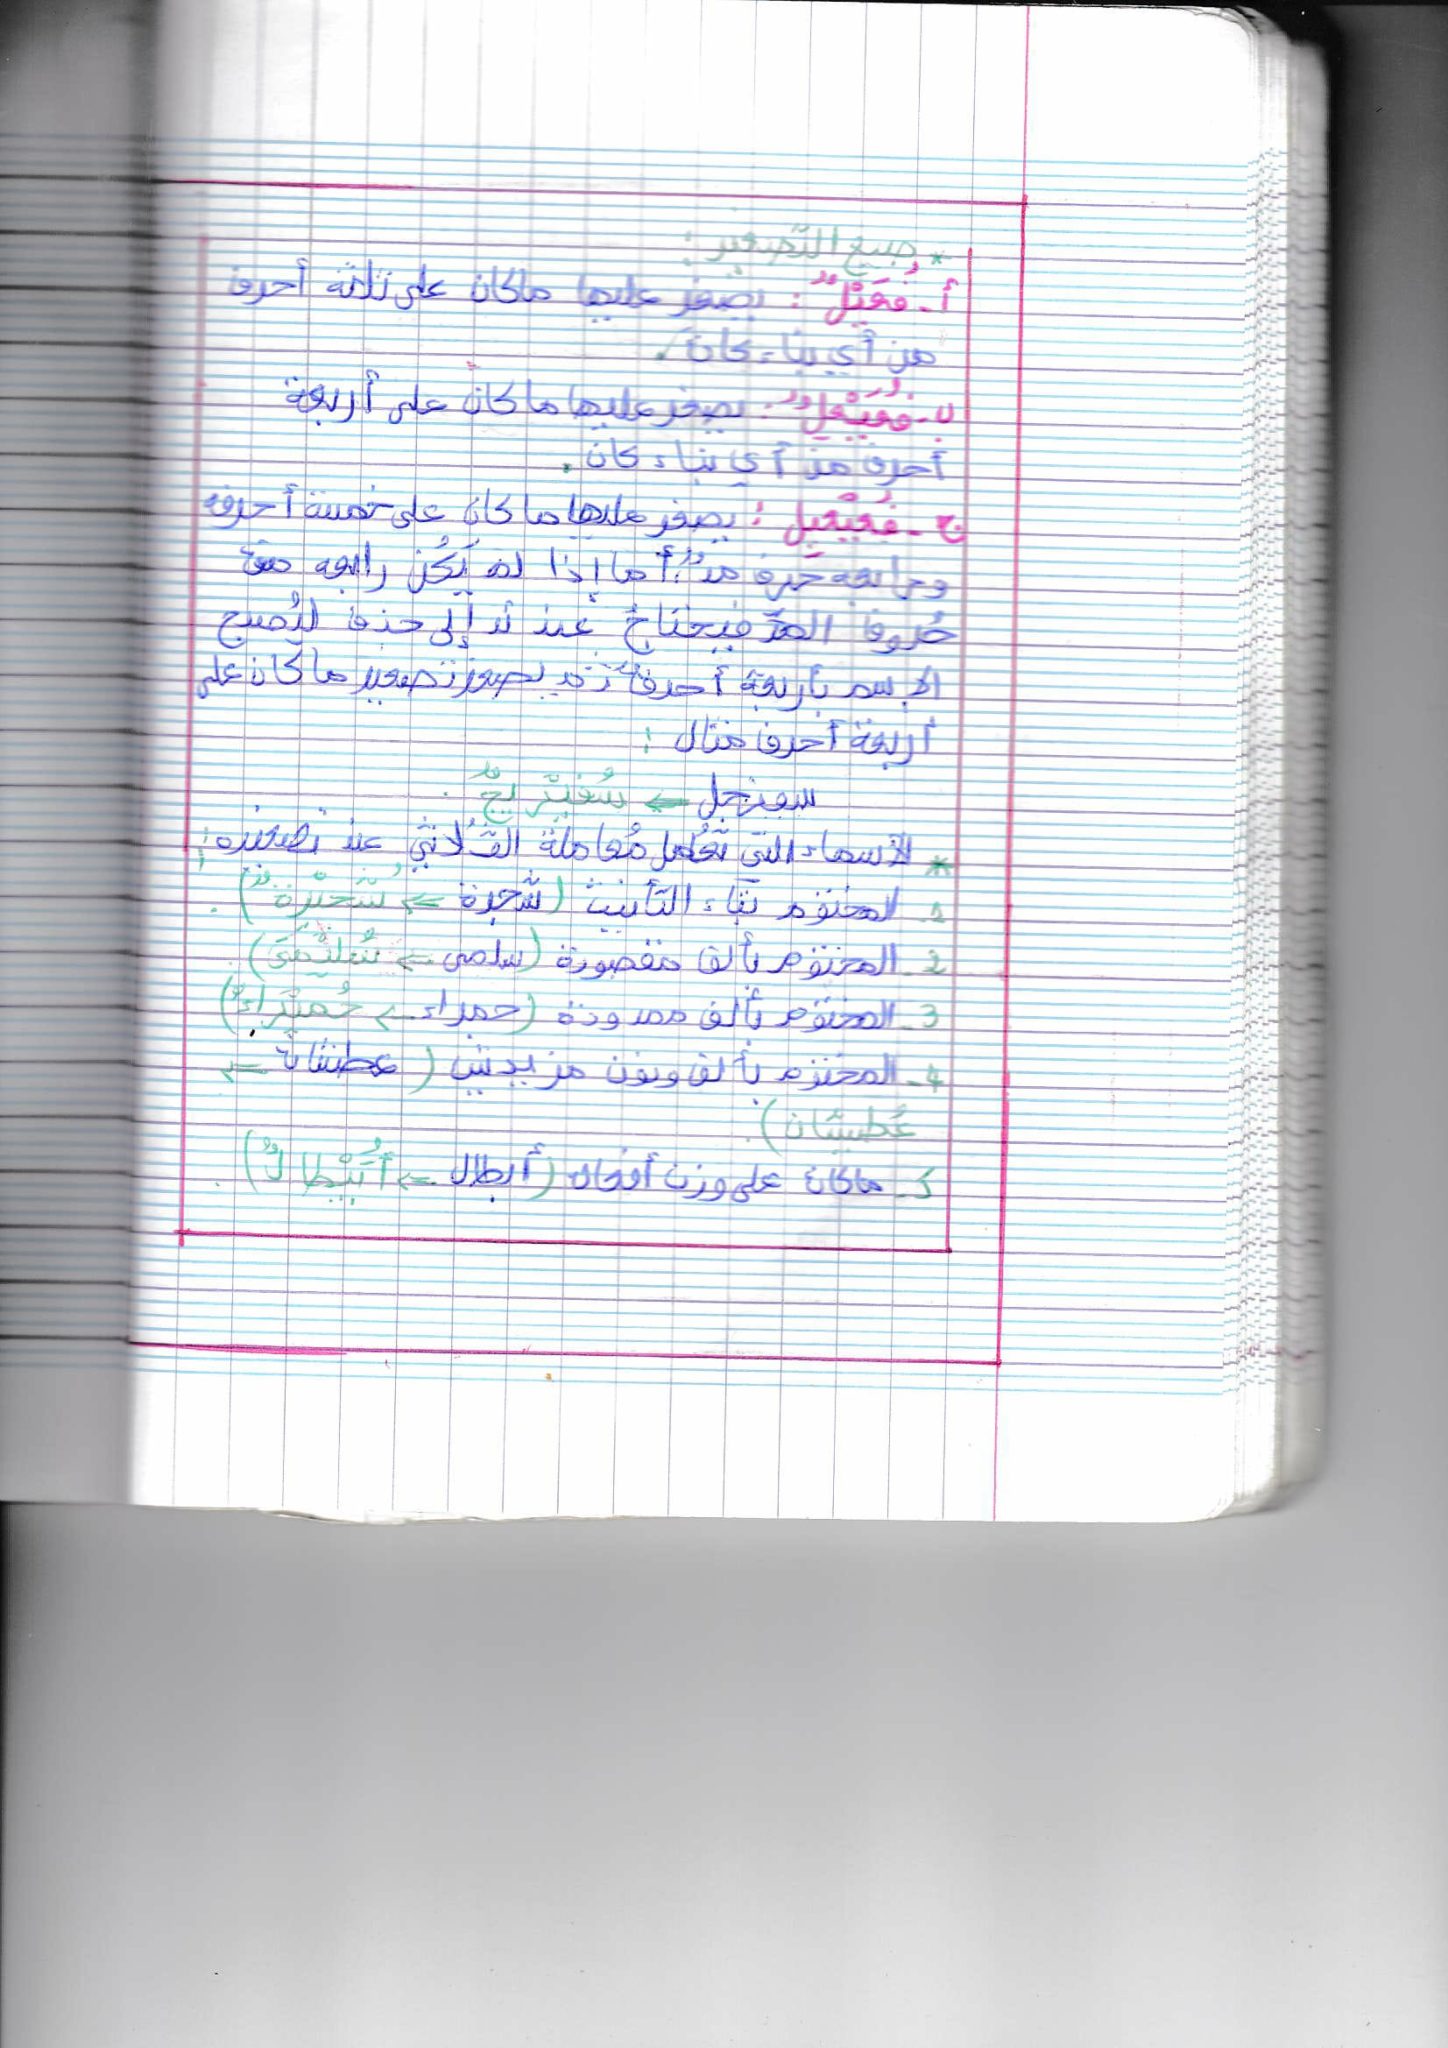 * صيغ التّصغير :
أ - فُعَيْلٌ : يصغر عليها ما كان على ثلاثة أحرف
من أي بناء كان.
ب - فُعَيْعِلٌ : يصغر عليها ما كان على أربعة
أحرف من أي بناء كان.
ج - فُعَيْعِيلٌ : يصغر عليها ما كان على خمسة أحرف
ورابعه حرف مدّ، أما إذا لم يَكُنْ رابعه من
حُروف المدّ فيحتاجُ عندئذ إلى حذف ليُصبح
الاسم بأربعة أحرف، ثم يصغر تصغير ما كان على
أربعة أحرف مثال :
سفرجل ← سُفَيْرِيجٌ .
* الأسماء التي تُعامل مُعاملة الثّلاثي عند تصغيره :
1 - المختوم بتاء التأنيث (شجرة ← شُجَيْرَةٌ).
2 - المختوم بألف مقصورة (سلمى ← سُلَيْمَى).
3 - المختوم بألف ممدودة (حمراء ← حُمَيْرَاءُ)
4 - المختوم بألف ونون مزيدتين (عطشان ←
عُطيشان).
5 - ما كان على وزن أفعال (أبطال ← أُبَيْطَالٌ).